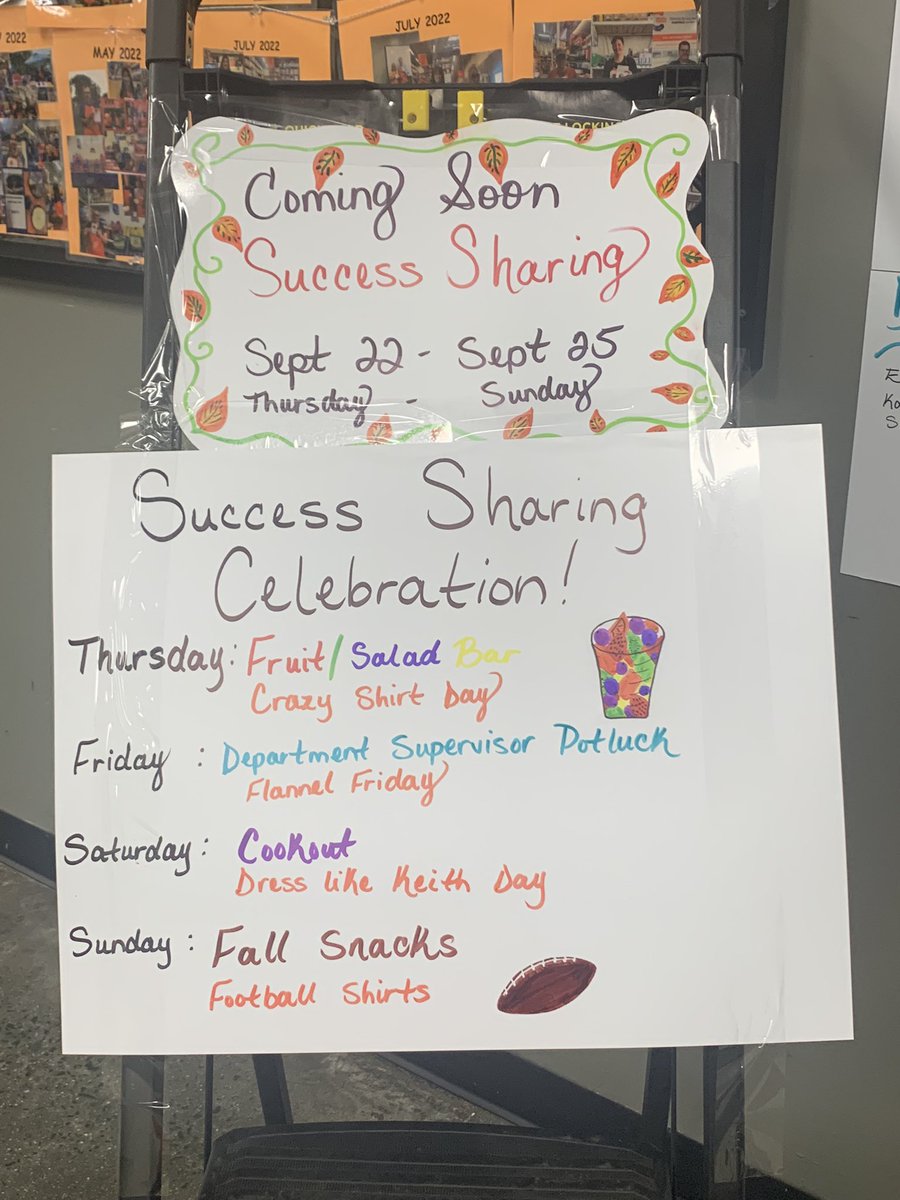 MAY 2022
JULY 2022
JULY 2022
Coming Soon
Success Sharing
Sept 22 - Sept 25
Thursday - Sunday
Success Sharing
Celebration!
Thursday: Fruit/Salad Bar
Crazy Shirt Day
Friday : Department Supervisor Potluck
Flannel Friday
Saturday: Cookout
Dress like Keith Day
Sunday : Fall Snacks
Football Shirts